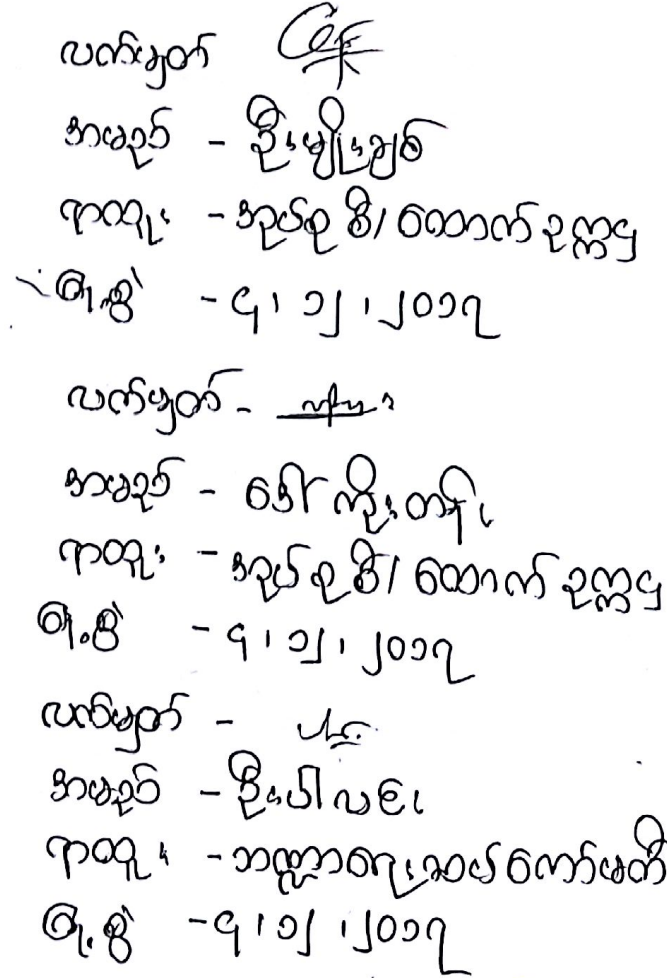 လက်မှတ်
အမည် - ဦးမျိုးချစ်
ရာထူး - အုပ်စု စီ/ထောက် ဥက္ကဌ
ရက်စွဲ - ၄၊ ၁၂၊ ၂၀၁၇
လက်မှတ် -
အမည် - ဒေါ်ကိုးတန်း
ရာထူး - အုပ်စု စီ/ထောက် ဥက္ကဌ
ရက်စွဲ - ၄၊ ၁၂၊ ၂၀၁၇
လက်မှတ် -
အမည် - ဦးပေါလင်း
ရာထူး - ဘဏ္ဍာရေးဆပ်ကော်မတီ
ရက်စွဲ - ၄၊ ၁၂၊ ၂၀၁၇